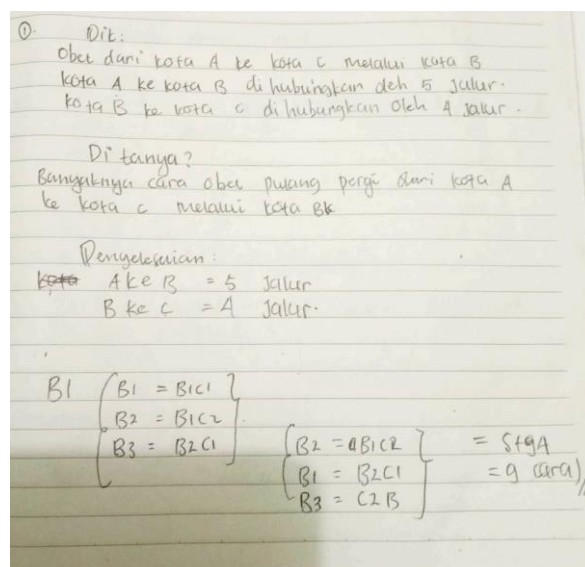 ①. Dit:
Obet dari kota A ke kota C melalui kota B
kota A ke kota B dihubungkan oleh 5 jalur.
kota B ke kota C dihubungkan oleh 4 jalur.
Ditanya?
Banyaknya cara obet pulang pergi dari kota A
ke kota C melalui kota B
Penyelesaian:
A ke B = 5 Jalur
B ke C = 4 Jalur.
B1
B1 = B1C1
B2 = B1C2
B3 = B2C1
B2 = B1C2
B1 = B2C1
B3 = C2B
= 5+
= 9 cara